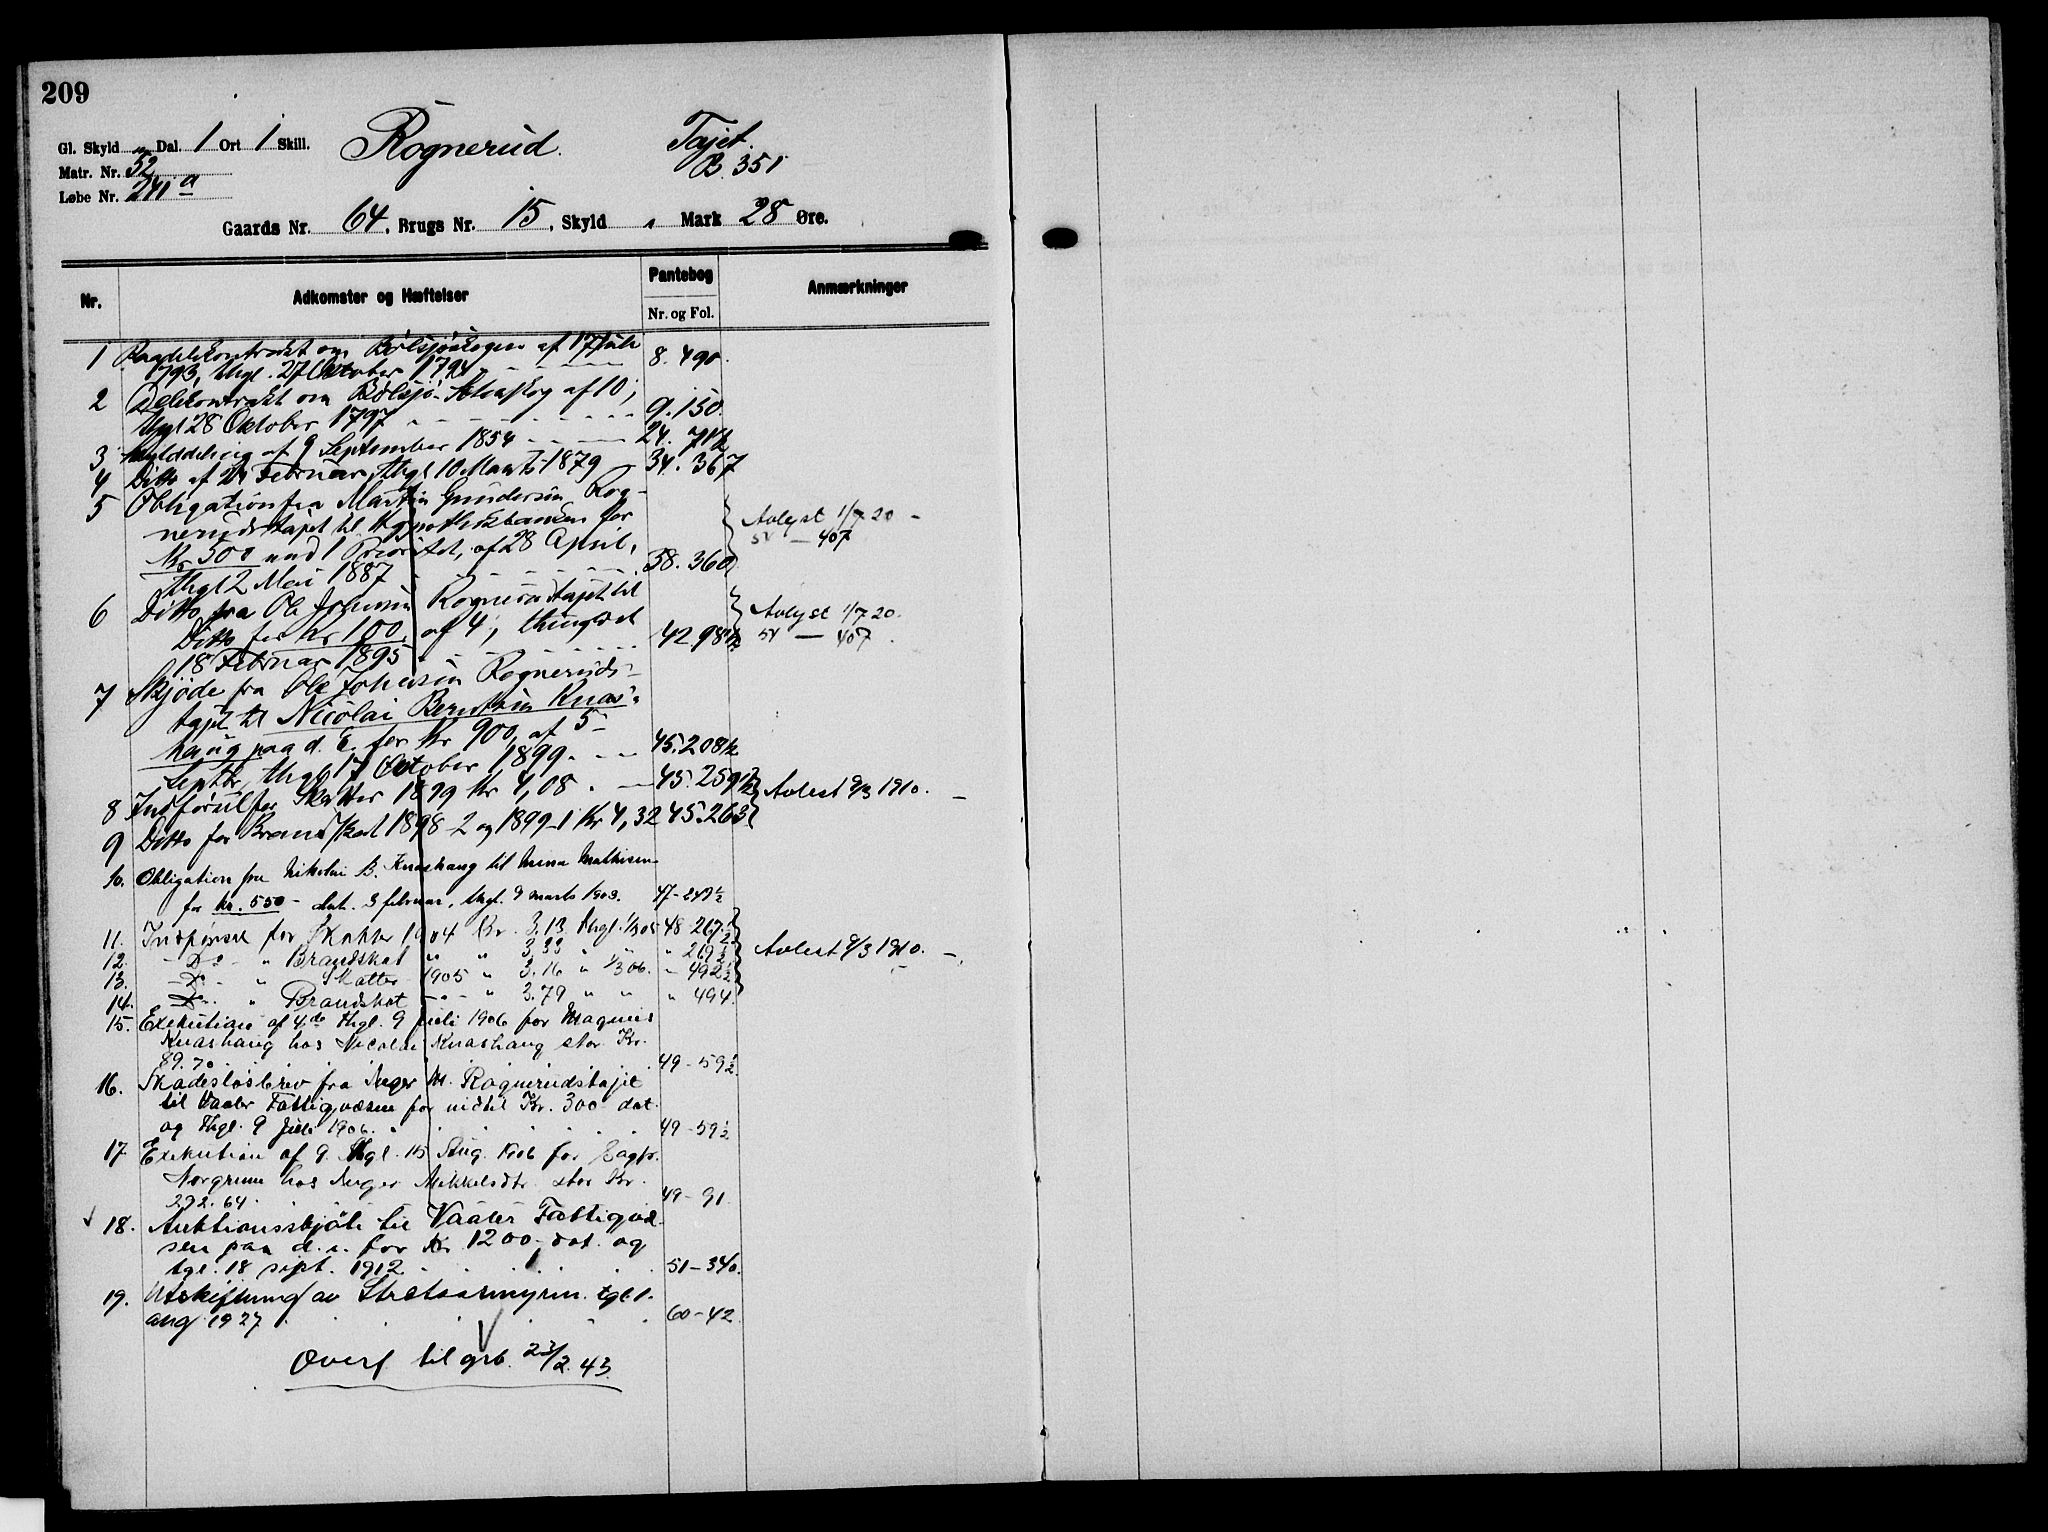 209
Gl. Skyld " Dal. 1 Ort 1 Skill. Rognerud. Tajet.
Matr. Nr. 52 B. 351
Løbe Nr. 241 a
Gaards Nr. 64, Brugs Nr. 15, Skyld " Mark 28 Øre.
Nr. Adkomster og Hæftelser Pantebog Anmærkninger
Nr. og Fol.
1 om af 17 Juli
1793, thgl. 27 Oktober 1794 8. 490.
2 Delekontrakt om af 10,
thgl 28 Oktober 1797 9. 150.
3 Skylddeling af 9 September 1854 24. 71 1/2
4 Ditto af Februar, thgl 10 Marts 1879 34. 367
5 Obligation fra Martin Gundersen Rog-
nerudstajet til Hypothekbanken for
Kr 500 mod 1 Prioritet, af 28 April, Avlyst 1/7 20 -
thgl 2 Mai 1887 38. 360 54 — 407
6 Ditto fra Ole Johnsen Rognerudstajet til
Ditto for Kr 100, af 4, thinglæst Avlyst 1/7 20.
18 Februar 1895 42 98 1/2 54 — 407.
7 Skjøde fra Ole Johnsen Rogneruds-
tajet til Nicolai Berntsen Knas-
haug paa d. E. for Kr 900, af 5
Septbr, thgl 17 October 1899. 45. 208 1/2
8 Indførsel for Skatter 1899 Kr 4,08. 45. 259 1/2 Avlest 9/3 1910. -
9 Ditto for Brandskat 1898-2 og 1899-1 Kr 4,32 45. 263
10. Obligation fra Nikolai B. Knashaug til Mina Mathisen
for kr. 550 - dat. 3 februar, thgl. 9 marts 1903. 47-249 1/2
11. Indførsel for Skatter 1904 Kr. 3.13 thgl. 1/3 05 48 267 1/2
12. - Do - " Brandskat " " 3.33 " " " 269 1/2 Avlest 9/3 1910. -
13. - Do - " Skatter 1905 " 3.16 " 1/3 06. " 492 1/2
14. - Do - " Brandskat - " - " 3.79 " " " 494.
15. Exekution af 4de thgl. 9 juli 1906 for Magnus
Knashaug hos Nicolai Knashaug stor Kr.
89.70. 49 - 59 1/2
16. Skadesløsbrev fra Inger M. Rognerudstajet
til Vaaler Fattigvæsen for indtil Kr. 300 dat.
og thgl. 9 juli 1906. 49 - 59 1/2
17. Exekution af 9. thgl. 15 Aug. 1906 for
Norgrenn hos Inger Mikkelsdtr. stor Kr.
292.64. 49 - 91
18. Auktionsskjøte til Vaaler Fattigvæ-
sen paa d. e. for Kr 1200 - dat. og
tgl. 18 sept. 1912. 51 - 340.
19. Utskiftning av tgl 1.
aug 1927 60 - 42
Overf til grb. 23/2. 43.